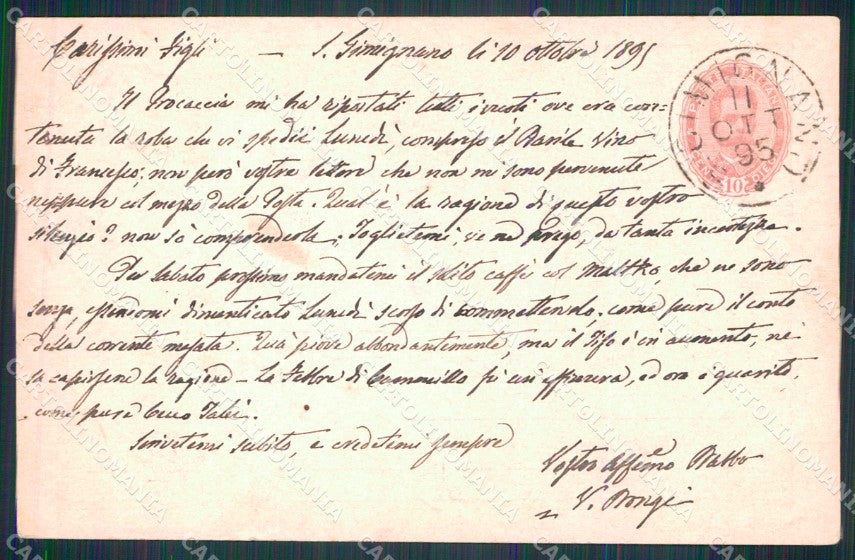 Carissimi Figli — S. Gimignano li 10 ottobre 1895
Il Procaccia mi ha riportati tutti i vuoti ove era con-
tenuta la roba che vi spedii Lunedì, compreso il Barile Vino
di Francesco, non però vostre lettere che non mi sono pervenute
neppure col mezzo della Posta. Qual'è la ragione di questo vostro
silenzio? non sò comprenderla. Toglietemi, ve ne prego, da tanta incertezza.
Per Sabato prossimo mandatemi il solito caffè col che ne sono
senza, essendomi dimenticato Lunedì scorso di commetterlo. come pure il conto
della corrente mesata. Quà piove abbondantemente, ma il Tifo è in aumento, nè
sa capirsene la ragione — La Febbre di Cammillo fù un effimera, ed ora è guarito,
come pure Cecco
Scrivetemi subito, e credetemi sempre
Vostro affemo Babbo
V.
S. GIMIGNANO
11
OT
95